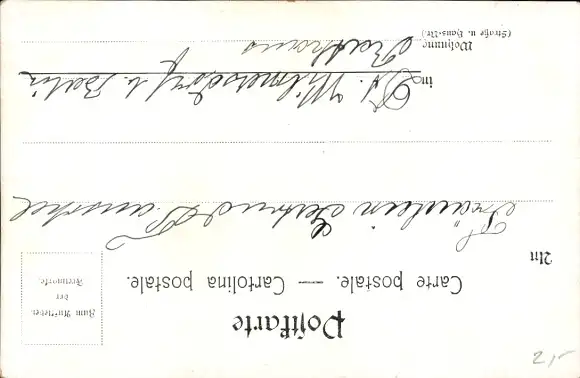 Postkarte
Carte postale. — Cartolina postale.
Zum Aufkleben
der
Freimarke.
An
Fräulein Gertrud
in Dt. Wilmersdorf b. Berlin
Wohnung Rathaus
(Straße u. Haus-Nr.)
21-